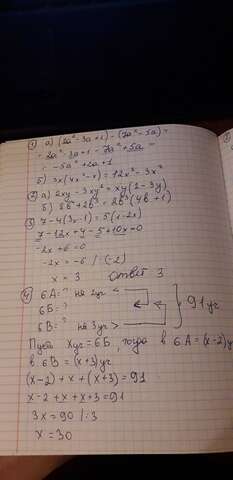 ① а) (2a² - 3a + 1) - (7a² - 5a) =
= 2a² - 3a + 1 - 7a² + 5a =
= -5a² + 2a + 1
б) 3x(4x² - x) = 12x³ - 3x²
② а) 2xy - 3xy² = xy(2 - 3y)
б) 8b⁴ + 2b³ = 2b³(4b + 1)
③ 7 - 4(3x - 1) = 5(1 - 2x)
7 - 12x + 4 - 5 + 10x = 0
-2x + 6 = 0
-2x = -6 / (-2)
x = 3 Ответ 3
④ 6А = ? на 2уч <
6Б = ? 91уч
6В = ? на 3уч >
Пусть x уч = 6Б, тогда в 6А = (x - 2) у
в 6В = (x + 3) уч
(x - 2) + x + (x + 3) = 91
x - 2 + x + x + 3 = 91
3x = 90 / :3
x = 30